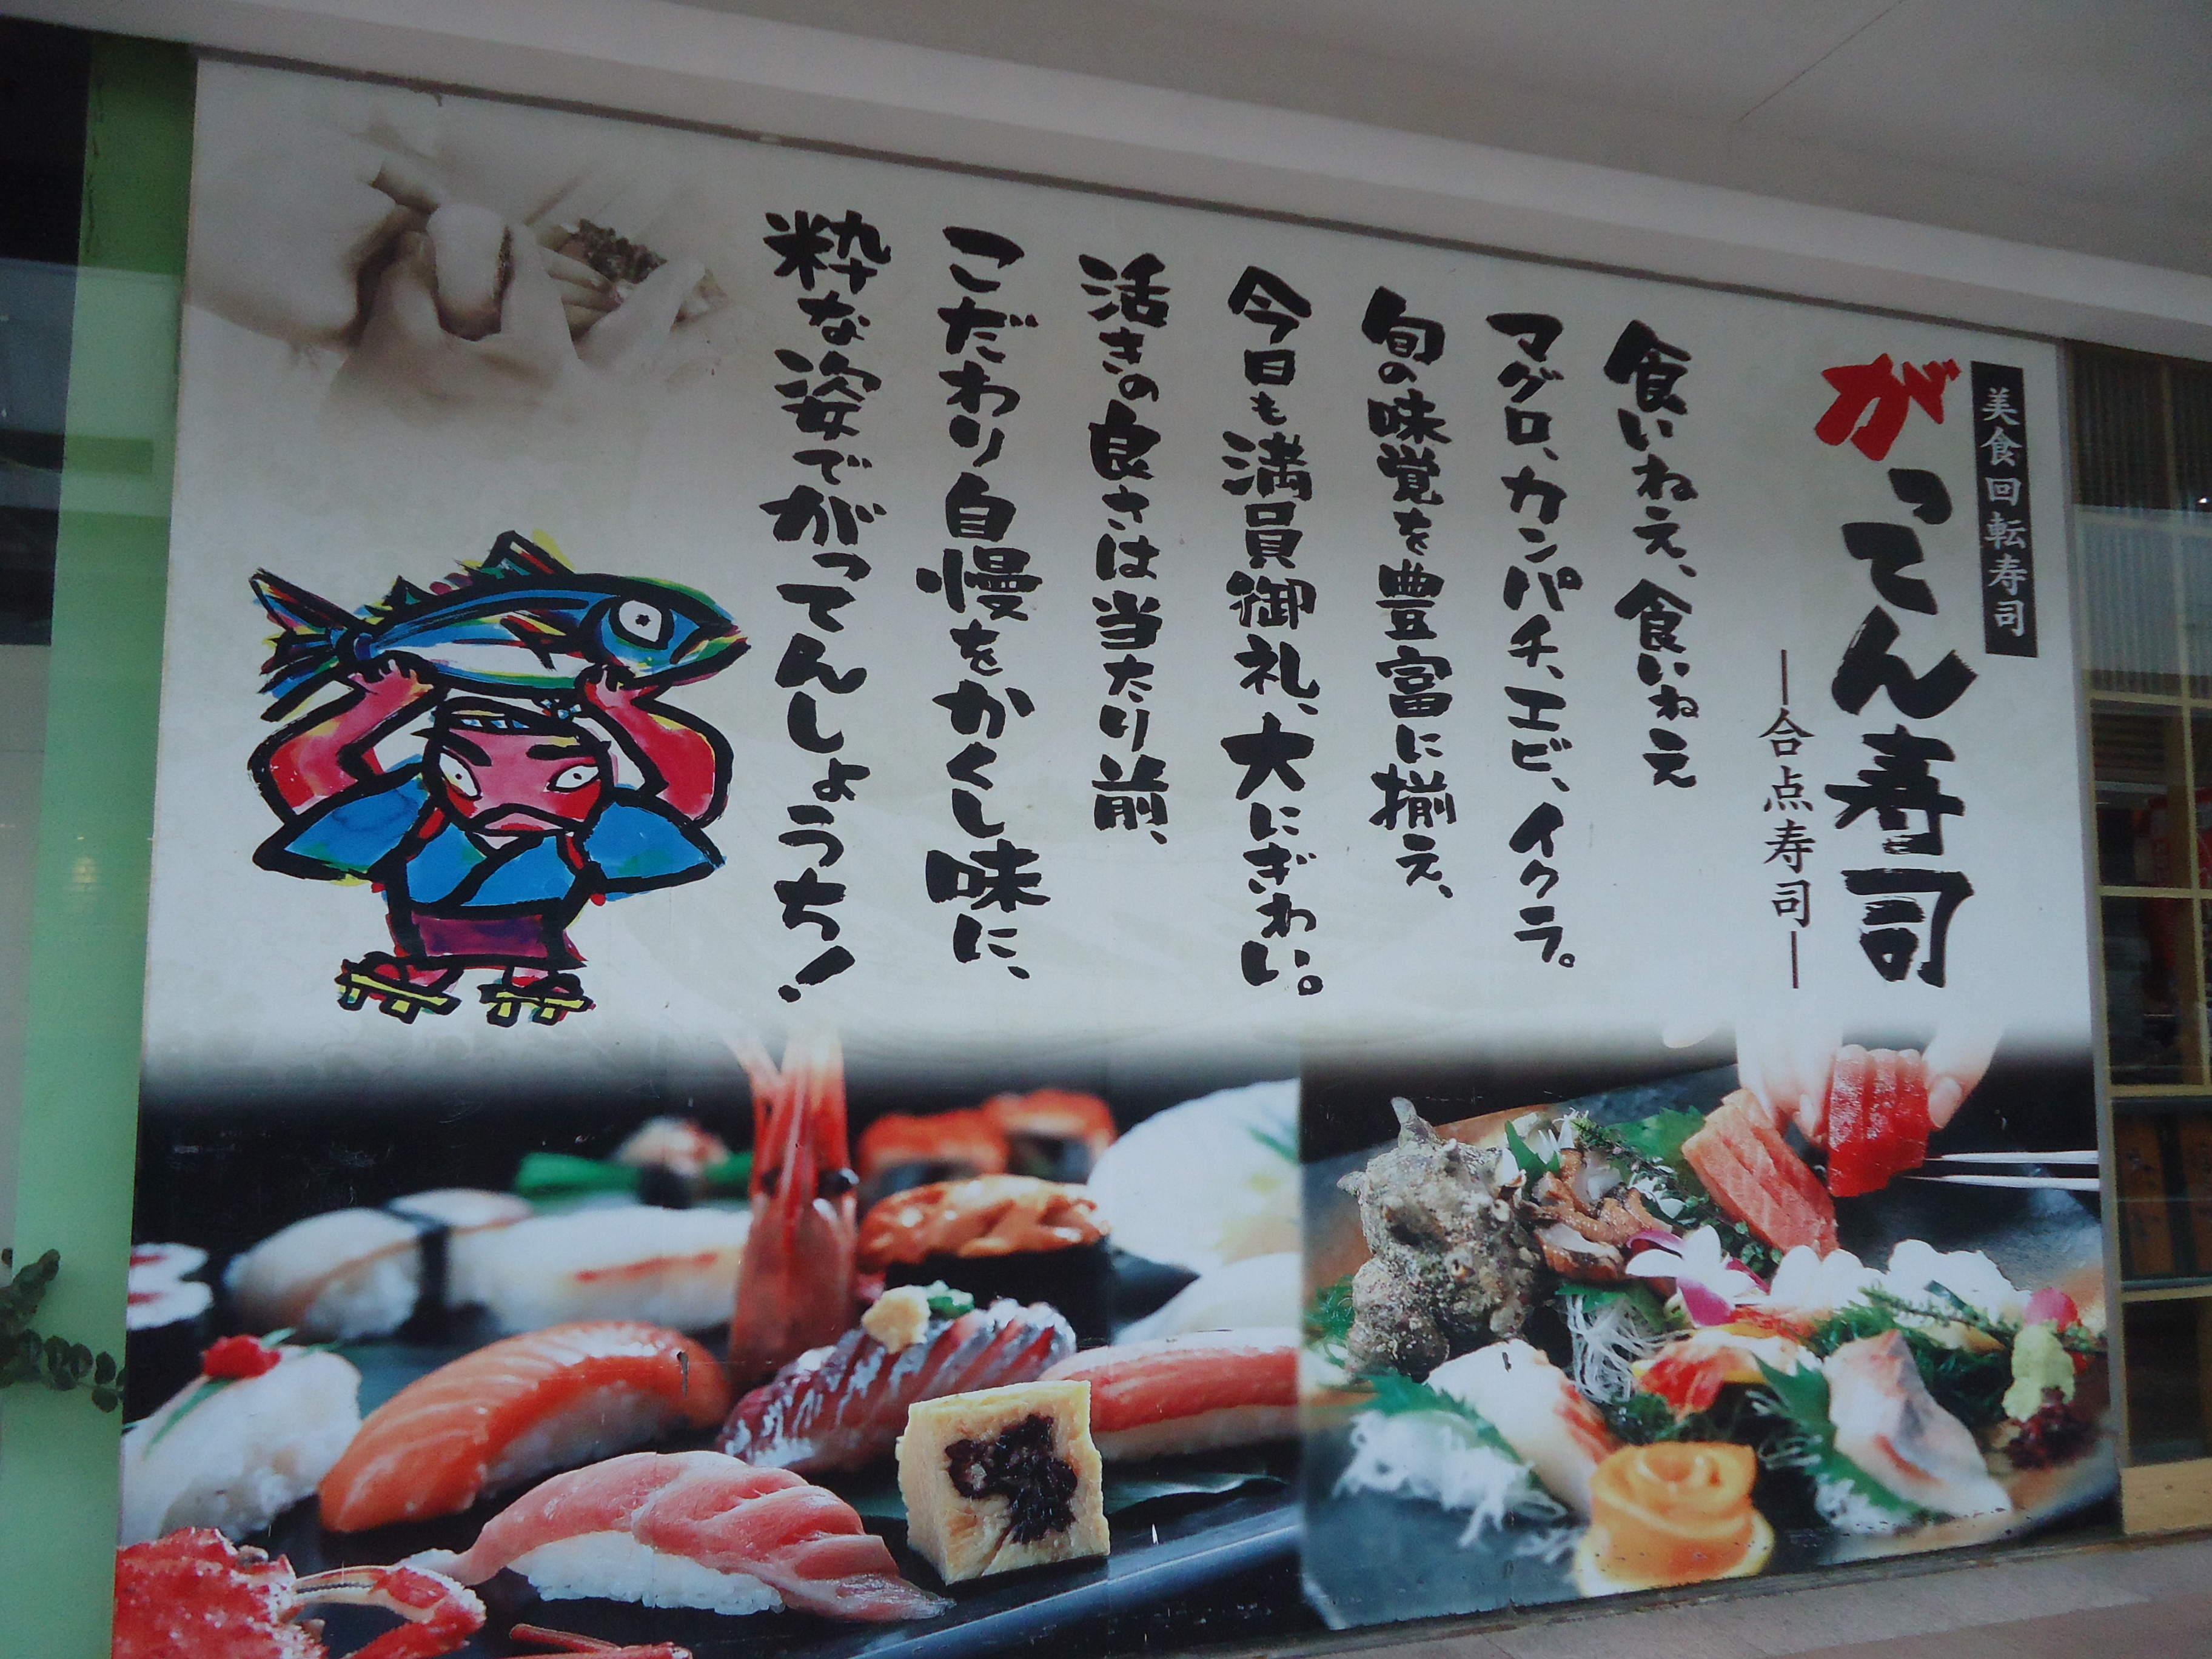 美食回転寿司
がってん寿司
―合点寿司―
食いねえ、食いねえ
マグロ、カンパチ、エビ、イクラ。
旬の味覚を豊富に揃え、
今日も満員御礼、大にぎわい。
活きの良さは当たり前、
こだわり自慢をかくし味に、
粋な姿でがってんしょうち！